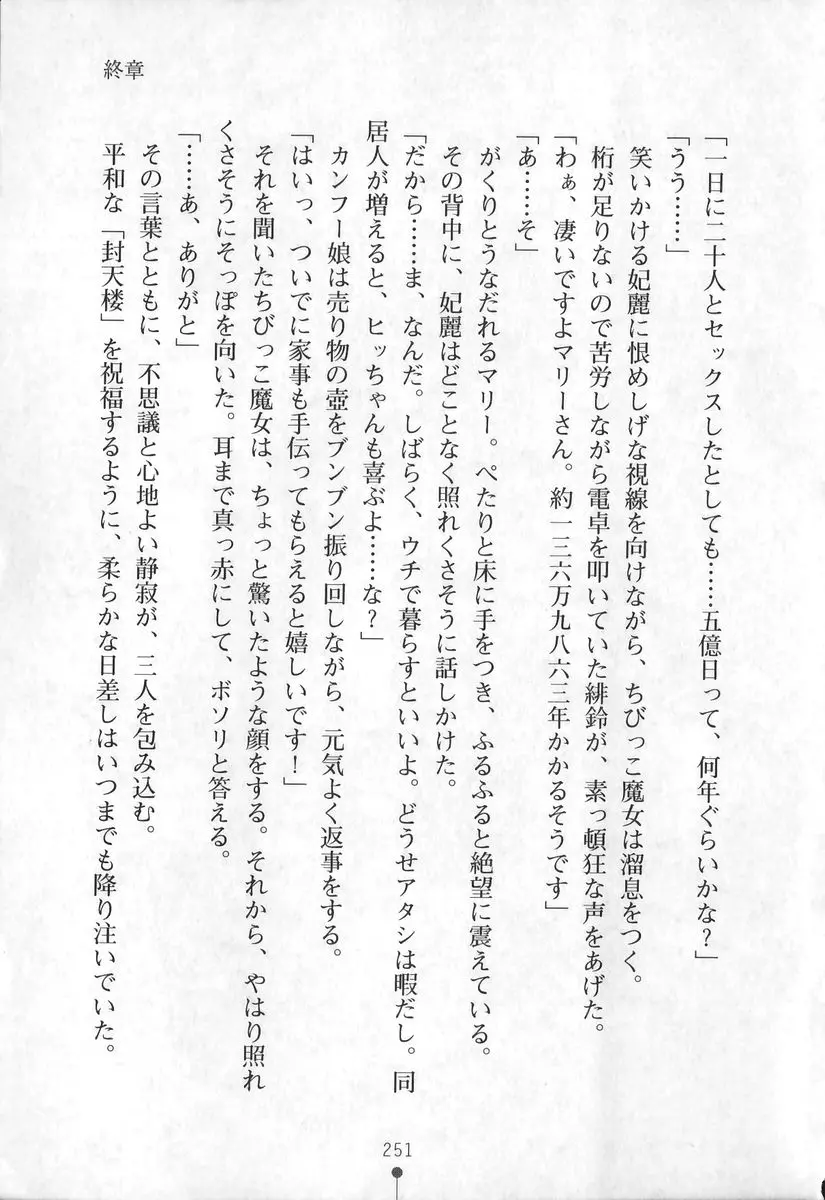 終章
「一日に二十人とセックスしたとしても……五億日って、何年ぐらいかな？」
「うう……」
笑いかける妃麗に恨めしげな視線を向けながら、ちびっこ魔女は溜息をつく。
桁が足りないので苦労しながら電卓を叩いていた緋鈴が、素っ頓狂な声をあげた。
「わぁ、凄いですよマリーさん。約一三六万九八六三年かかるそうです」
「あ……そ」
がくりとうなだれるマリー。ぺたりと床に手をつき、ふるふると絶望に震えている。
その背中に、妃麗はどことなく照れくさそうに話しかけた。
「だから……ま、なんだ。しばらく、ウチで暮らすといいよ。どうせアタシは暇だし。同
居人が増えると、ヒッちゃんも喜ぶよ……な？」
カンフー娘は売り物の壺をブンブン振り回しながら、元気よく返事をする。
「はいっ、ついでに家事も手伝ってもらえると嬉しいです！」
それを聞いたちびっこ魔女は、ちょっと驚いたような顔をする。それから、やはり照れ
くさそうにそっぽを向いた。耳まで真っ赤にして、ボソリと答える。
「……あ、ありがと」
その言葉とともに、不思議と心地よい静寂が、三人を包み込む。
平和な「封天楼」を祝福するように、柔らかな日差しはいつまでも降り注いでいた。
251